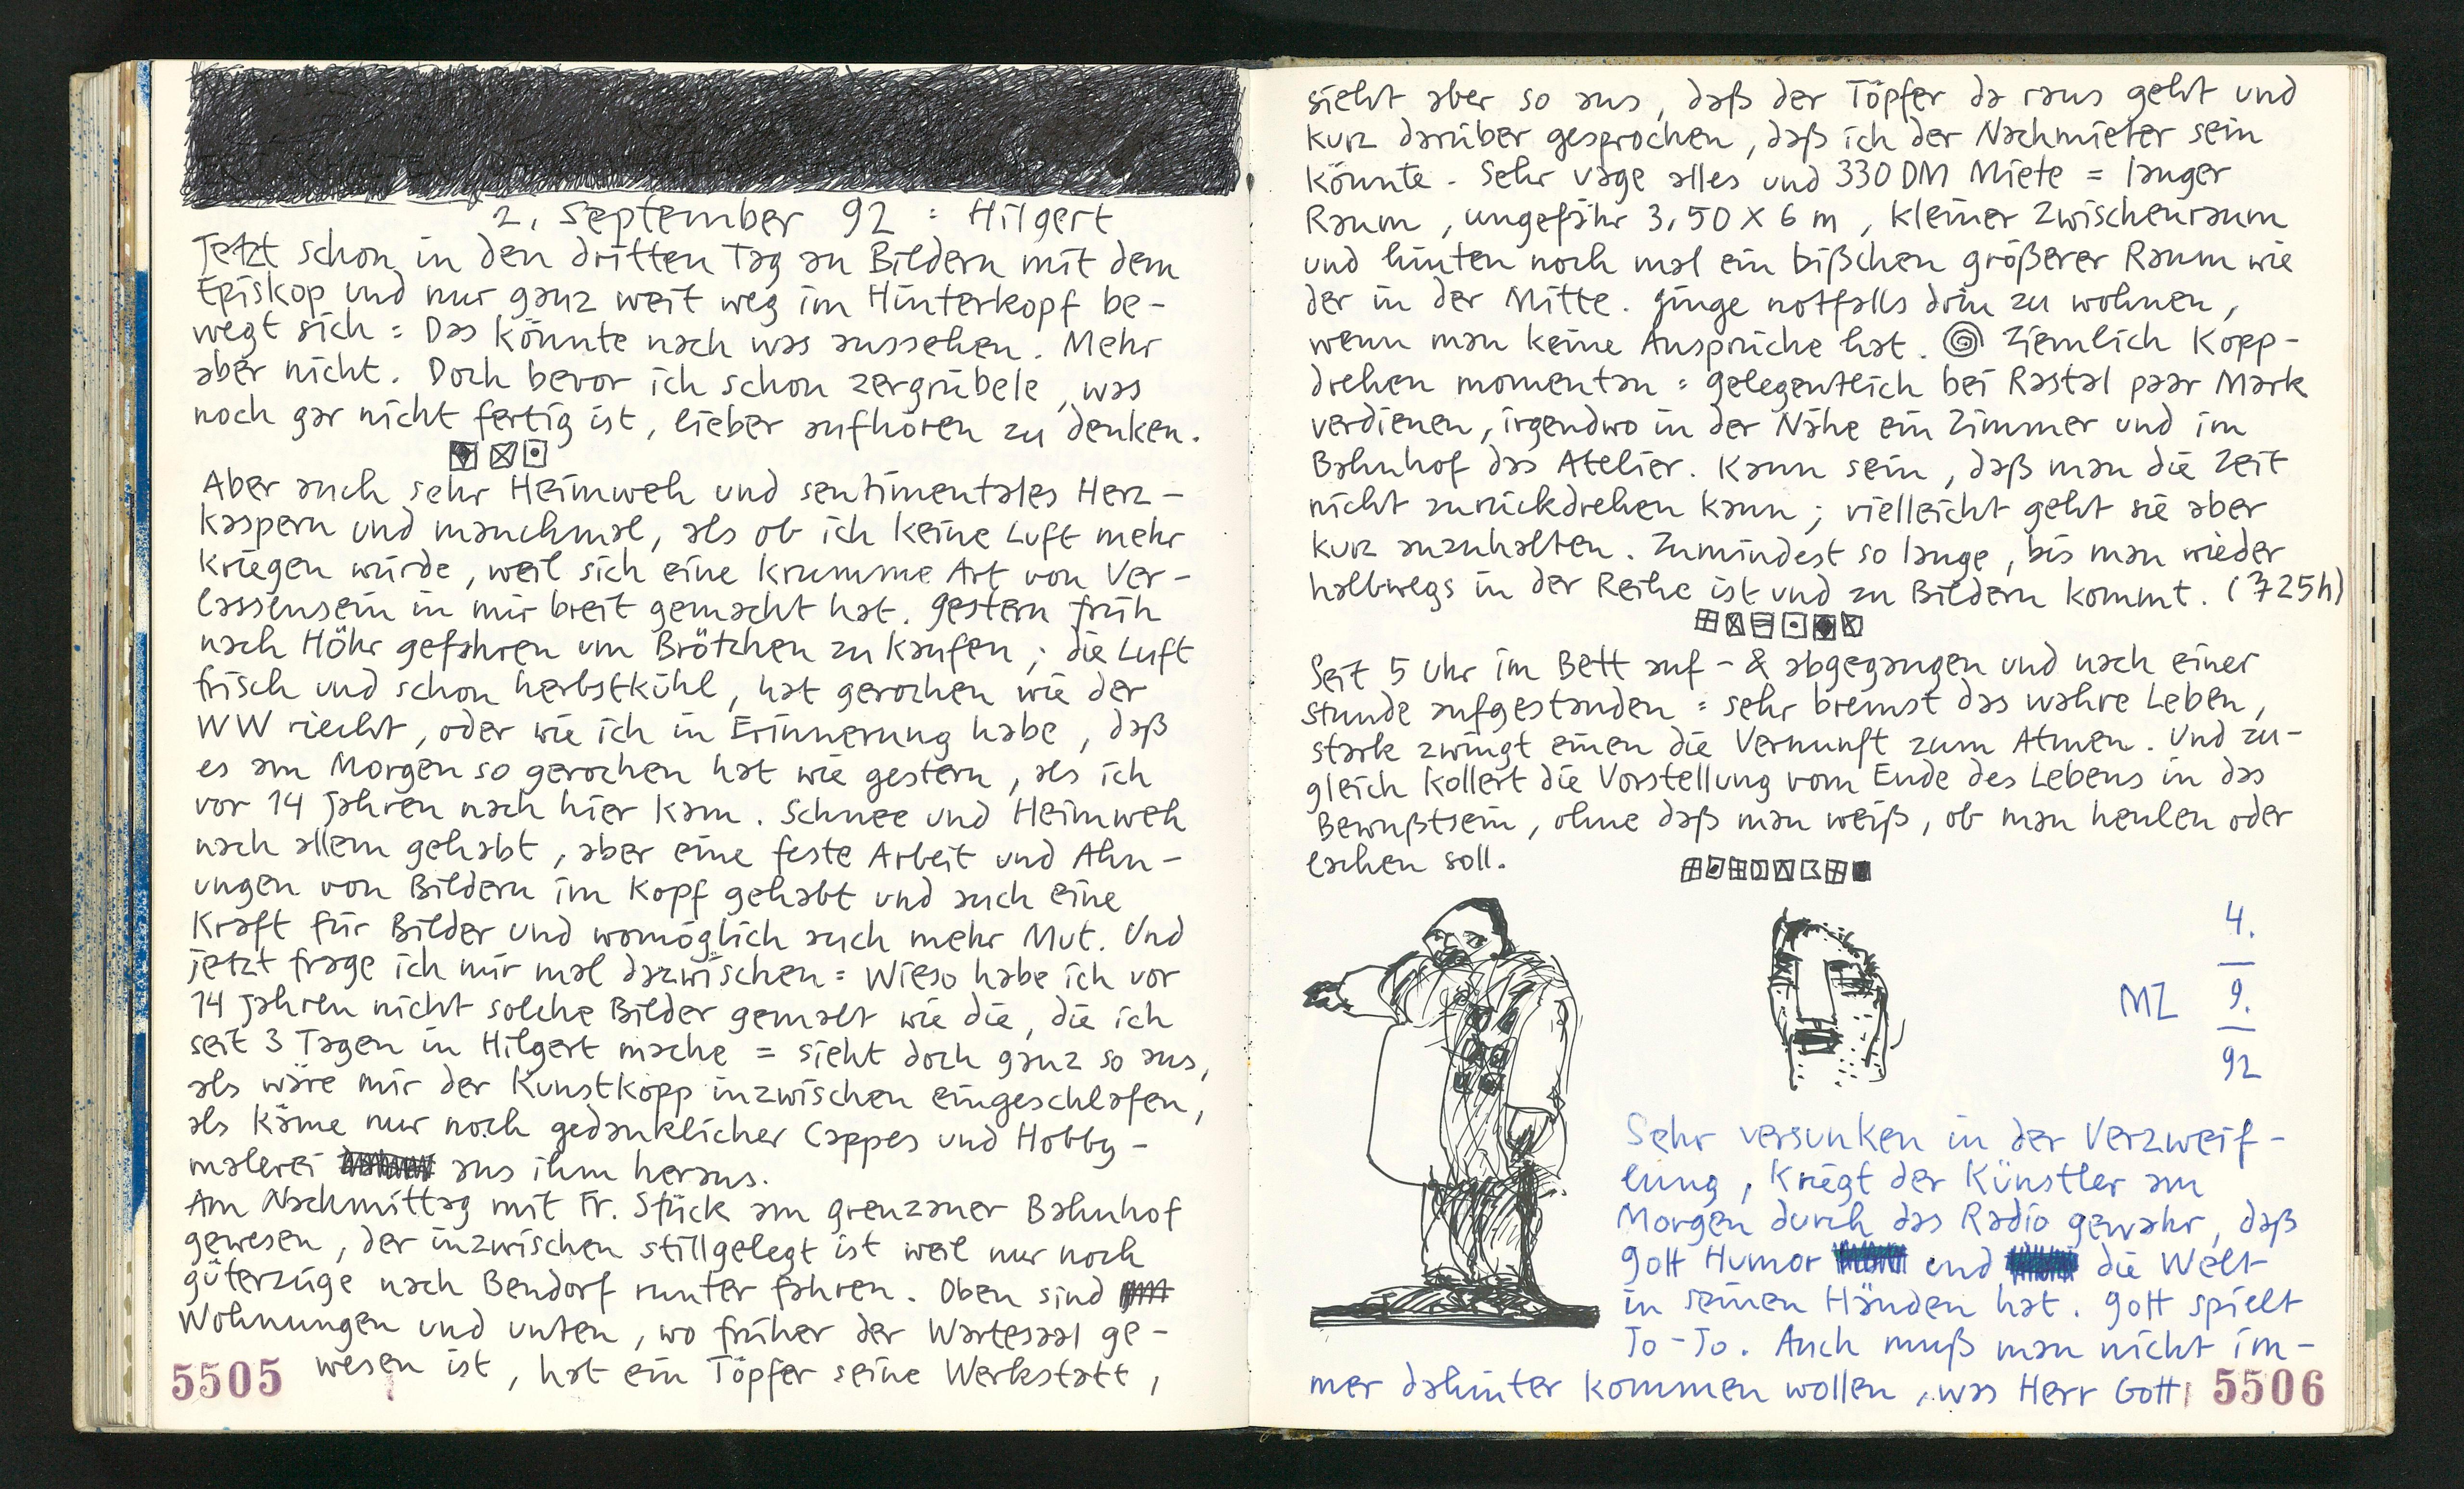 2. September 92 : Hilgert
Jetzt schon in den dritten Tag an Bildern mit dem
Episkop und nur ganz weit weg im Hinterkopf be-
wegt sich : Das könnte nach was aussehen. Mehr
aber nicht. Doch bevor ich schon zergrübele, was
noch gar nicht fertig ist, lieber aufhören zu denken.
Aber auch sehr Heimweh und sentimentales Herz-
kaspern und manchmal, als ob ich keine Luft mehr
kriegen würde, weil sich eine krumme Art von Ver-
lassensein in mir breit gemacht hat. Gestern früh
nach Höhr gefahren um Brötchen zu kaufen ; die Luft
frisch und schon herbstkühl, hat gerochen wie der
WW riecht, oder wie ich in Erinnerung habe, daß
es am Morgen so gerochen hat wie gestern, als ich
vor 14 Jahren nach hier kam. Schnee und Heimweh
nach allem gehabt, aber eine feste Arbeit und Ahn-
ungen von Bildern im Kopf gehabt und auch eine
Kraft für Bilder und womöglich auch mehr Mut. Und
jetzt frage ich mir mal dazwischen : Wieso habe ich vor
14 Jahren nicht solche Bilder gemalt wie die, die ich
seit 3 Tagen in Hilgert mache = sieht doch ganz so aus,
als wäre mir der Kunstkopp inzwischen eingeschlafen,
als käme nur noch gedanklicher Cappes und Hobby-
malerei aus ihm heraus.
Am Nachmittag mit Fr. Stück am Grenzauer Bahnhof
gewesen, der inzwischen stillgelegt ist weil nur noch
Güterzüge nach Bendorf runter fahren. Oben sind
Wohnungen und unten, wo früher der Wartesaal ge-
wesen ist, hat ein Töpfer seine Werkstatt,
5505
sieht aber so aus, daß der Töpfer da raus geht und
kurz darüber gesprochen, daß ich der Nachmieter sein
könnte. Sehr vage alles und 330 DM Miete = langer
Raum, ungefähr 3,50 X 6 m, kleiner Zwischenraum
und hinten noch mal ein bißchen größerer Raum wie
der in der Mitte. Ginge notfalls drin zu wohnen,
wenn man keine Ansprüche hat. Ziemlich Kopp-
drehen momentan : gelegentlich bei Rastal paar Mark
verdienen, irgendwo in der Nähe ein Zimmer und im
Bahnhof das Atelier. Kann sein, daß man die Zeit
nicht zurückdrehen kann ; vielleicht geht sie aber
kurz anzuhalten. Zumindest so lange, bis man wieder
halbwegs in der Reihe ist und zu Bildern kommt. (725h)
Seit 5 Uhr im Bett auf- & abgegangen und nach einer
Stunde aufgestanden : sehr bremst das wahre Leben,
stark zwingt einen die Vernunft zum Atmen. Und zu-
gleich kollert die Vorstellung vom Ende des Lebens in das
Bewußtsein, ohne daß man weiß, ob man heulen oder
lachen soll.
MZ 4.
9.
92
Sehr versunken in der Verzweif-
lung, kriegt der Künstler am
Morgen durch das Radio gewahr, daß
Gott Humor und die Welt
in seinen Händen hat. Gott spielt
Jo-Jo. Auch muß man nicht im-
mer dahinter kommen wollen, was Herr Gott
5506